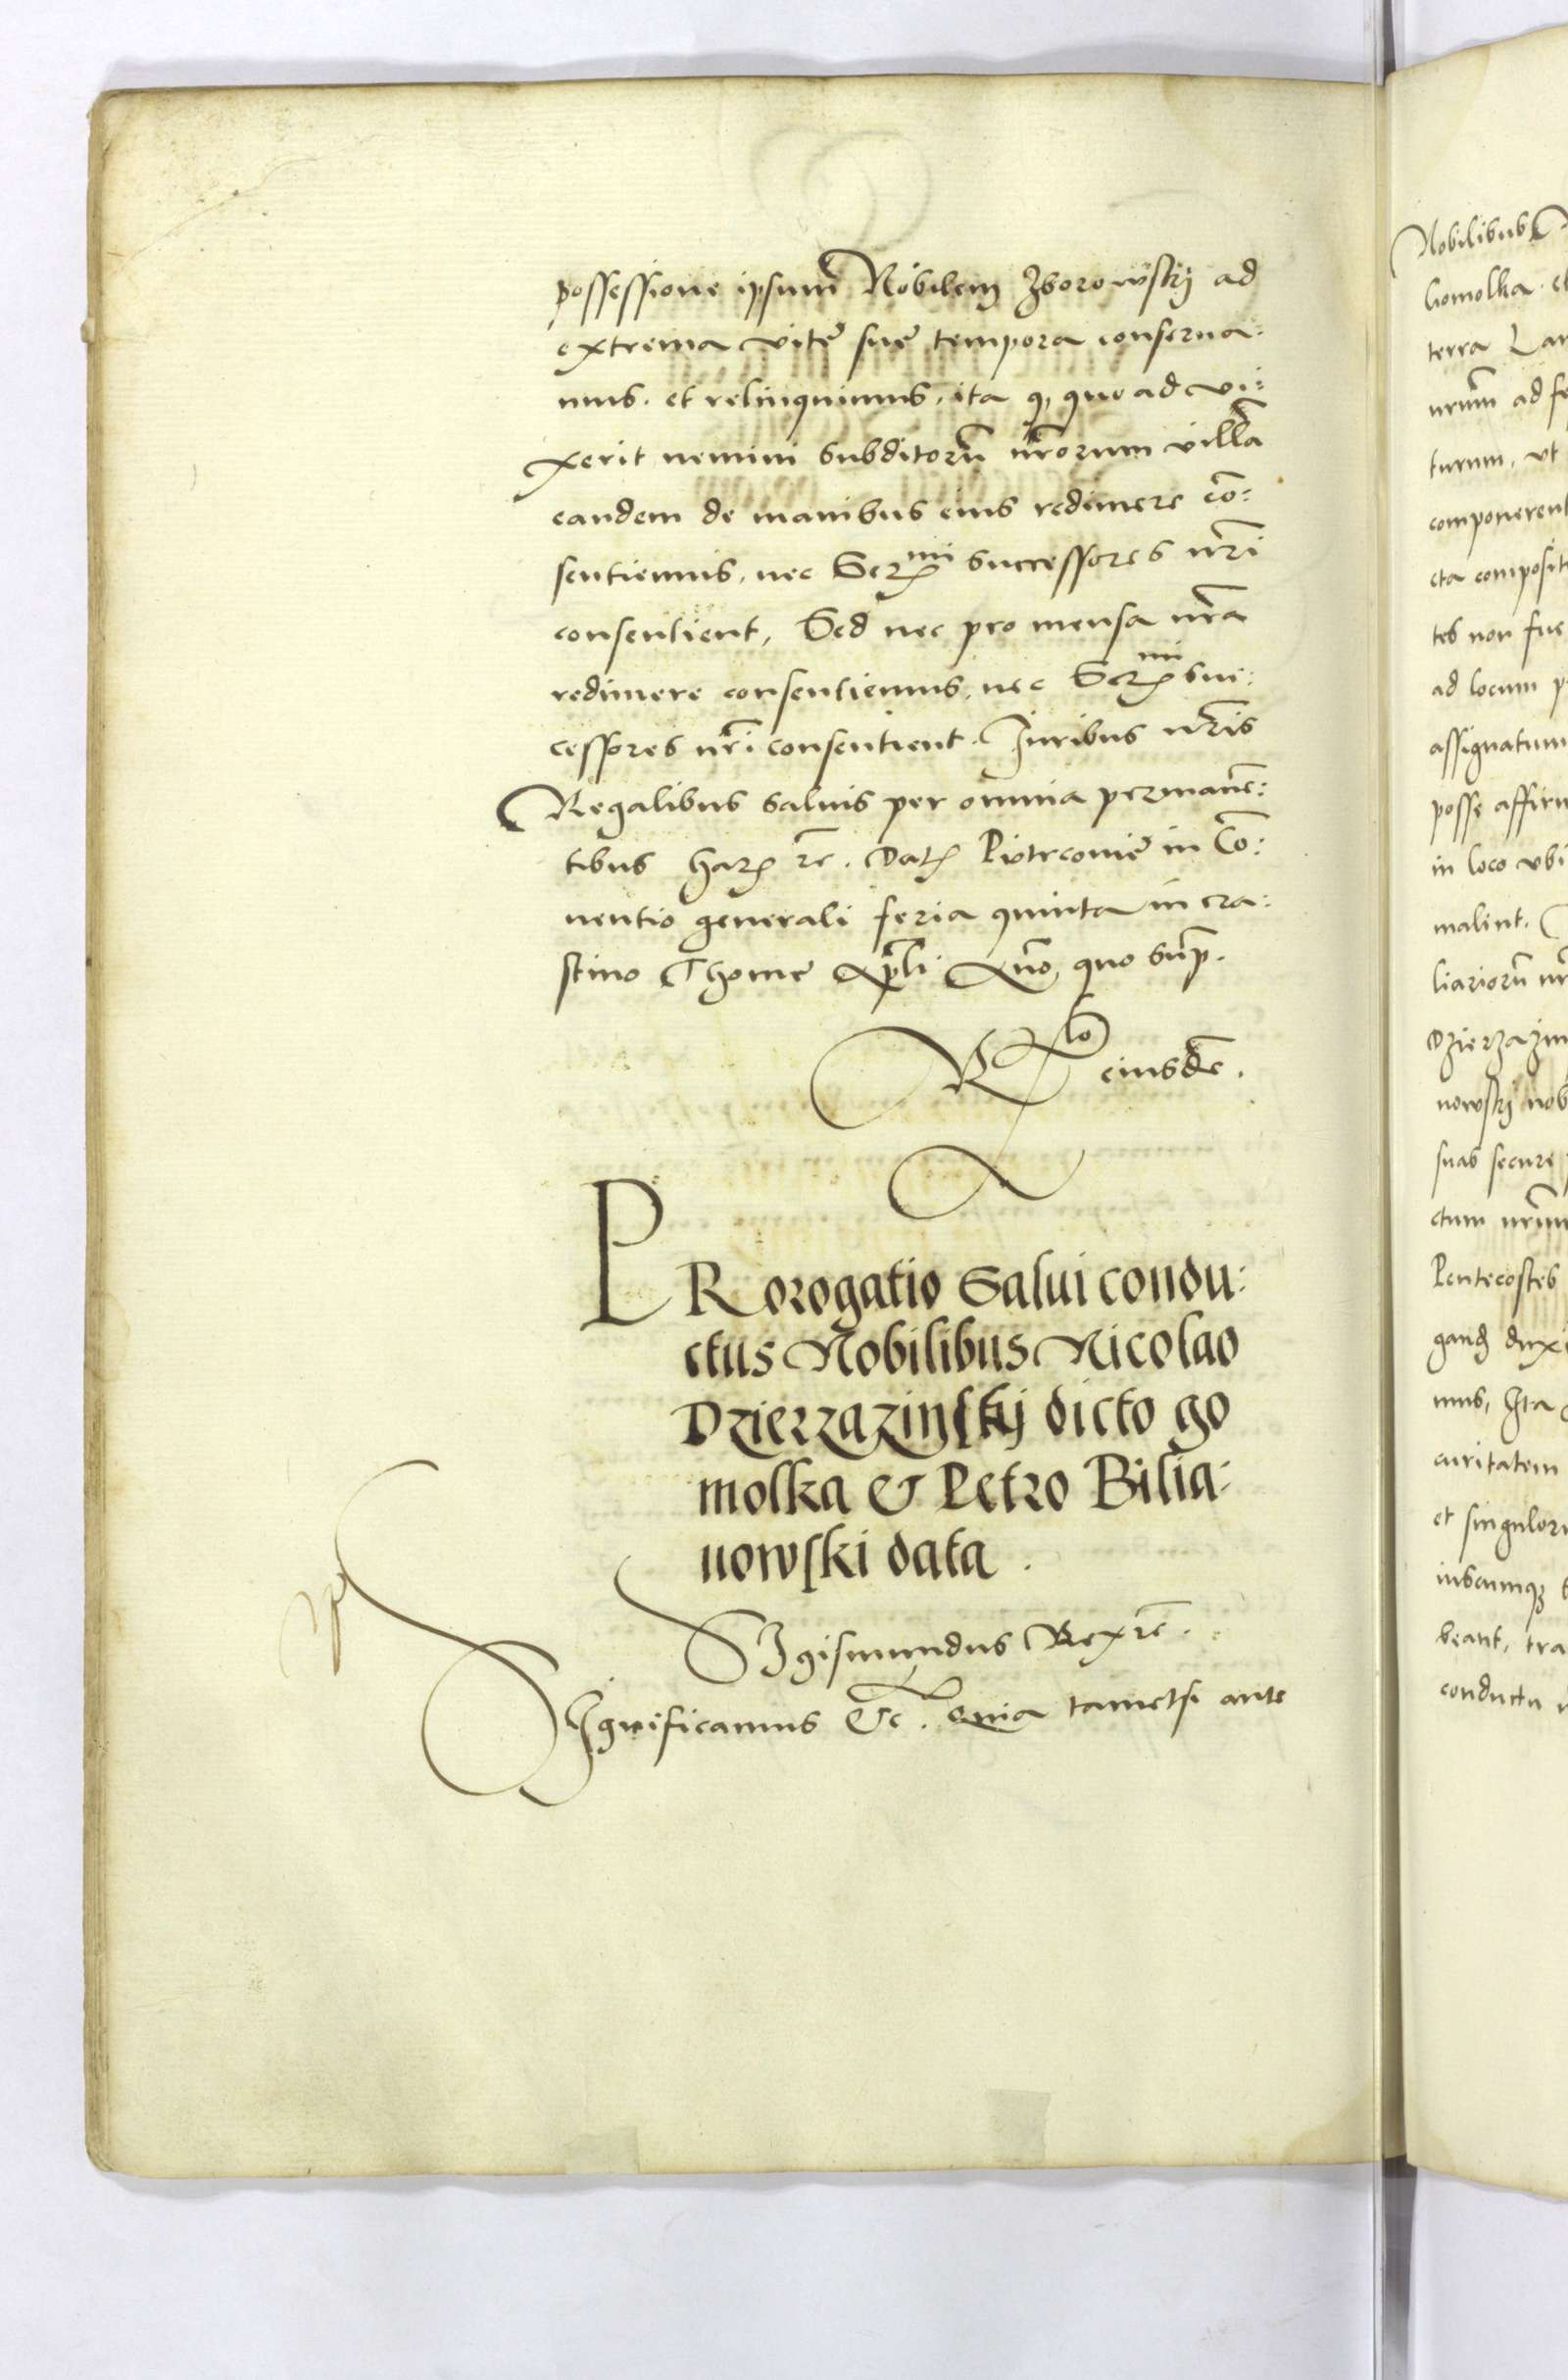 possessione ipsum Nobilem Zborowskÿ ad
extrema vite sue tempora conserua:
mus. et relinquimus. ita q, quo ad vi:
xerit nemini subditorũ nr̃orum villã
eandem de manibus eius redimere cõ:
sentiemus, nec Serᵐⁱ successores nr̃i
consentient, Sed nec pro mensa nr̃a
redimere consentiemus, nec Serᵐⁱ suc:
cessores nr̃i consentient. Juribus nr̃is
Regalibus saluis per omnia permanẽ:
tibus har. rc̃. Dat. Piotrconie in Cõ:
uentio generali feria quinta in cra:
stino Thome Apl̃i Año, quo sup̃.
Rᵗⁱᵒ eiusdẽ.
PRorogatio Salui condu:
ctus Nobilibus Nicolao
Dzierzazinskÿ dicto go
molka & Petro Bilia:
nowski data.
SIgismundus Rex rc̃.
SIgnificamus &c. Quia tametsi ante
Nobilibus
Gomolka et
terra Lan
nrũm ad fe
turum, vt
componerent
cta composit
tes non fue
ad locum p
assignatum
posse affirm
in loco vbi
malint.
liariorũ nr
Dzierzazin
nowskÿ nob
suas secure
ctum nrũm
Pentecostes
gand dux
mus, Ita
curitatem
et singulor
iuscumq;
beant, tra
conductu